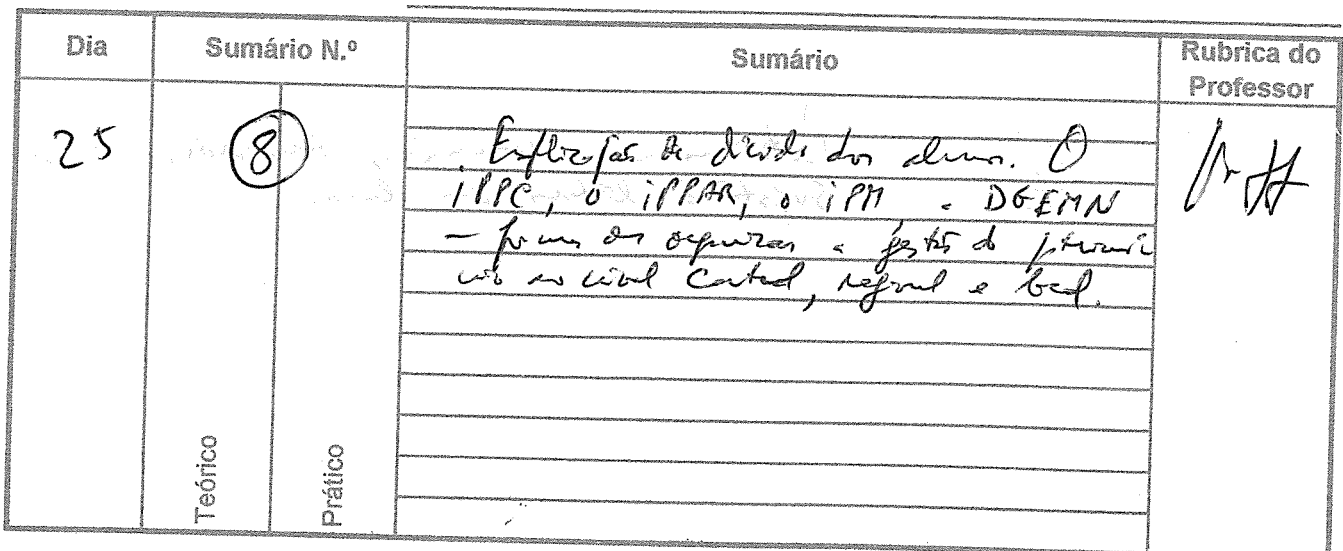 Dia
Sumário N.º
Sumário
Rubrica do
Professor
25
8
Explicação de dúvidas dos alunos. O
IPPC, o IPPAR, o IPM, a DGEMN
– formas de organizar a gestão do
central, regional e local.
Teórico
Prático